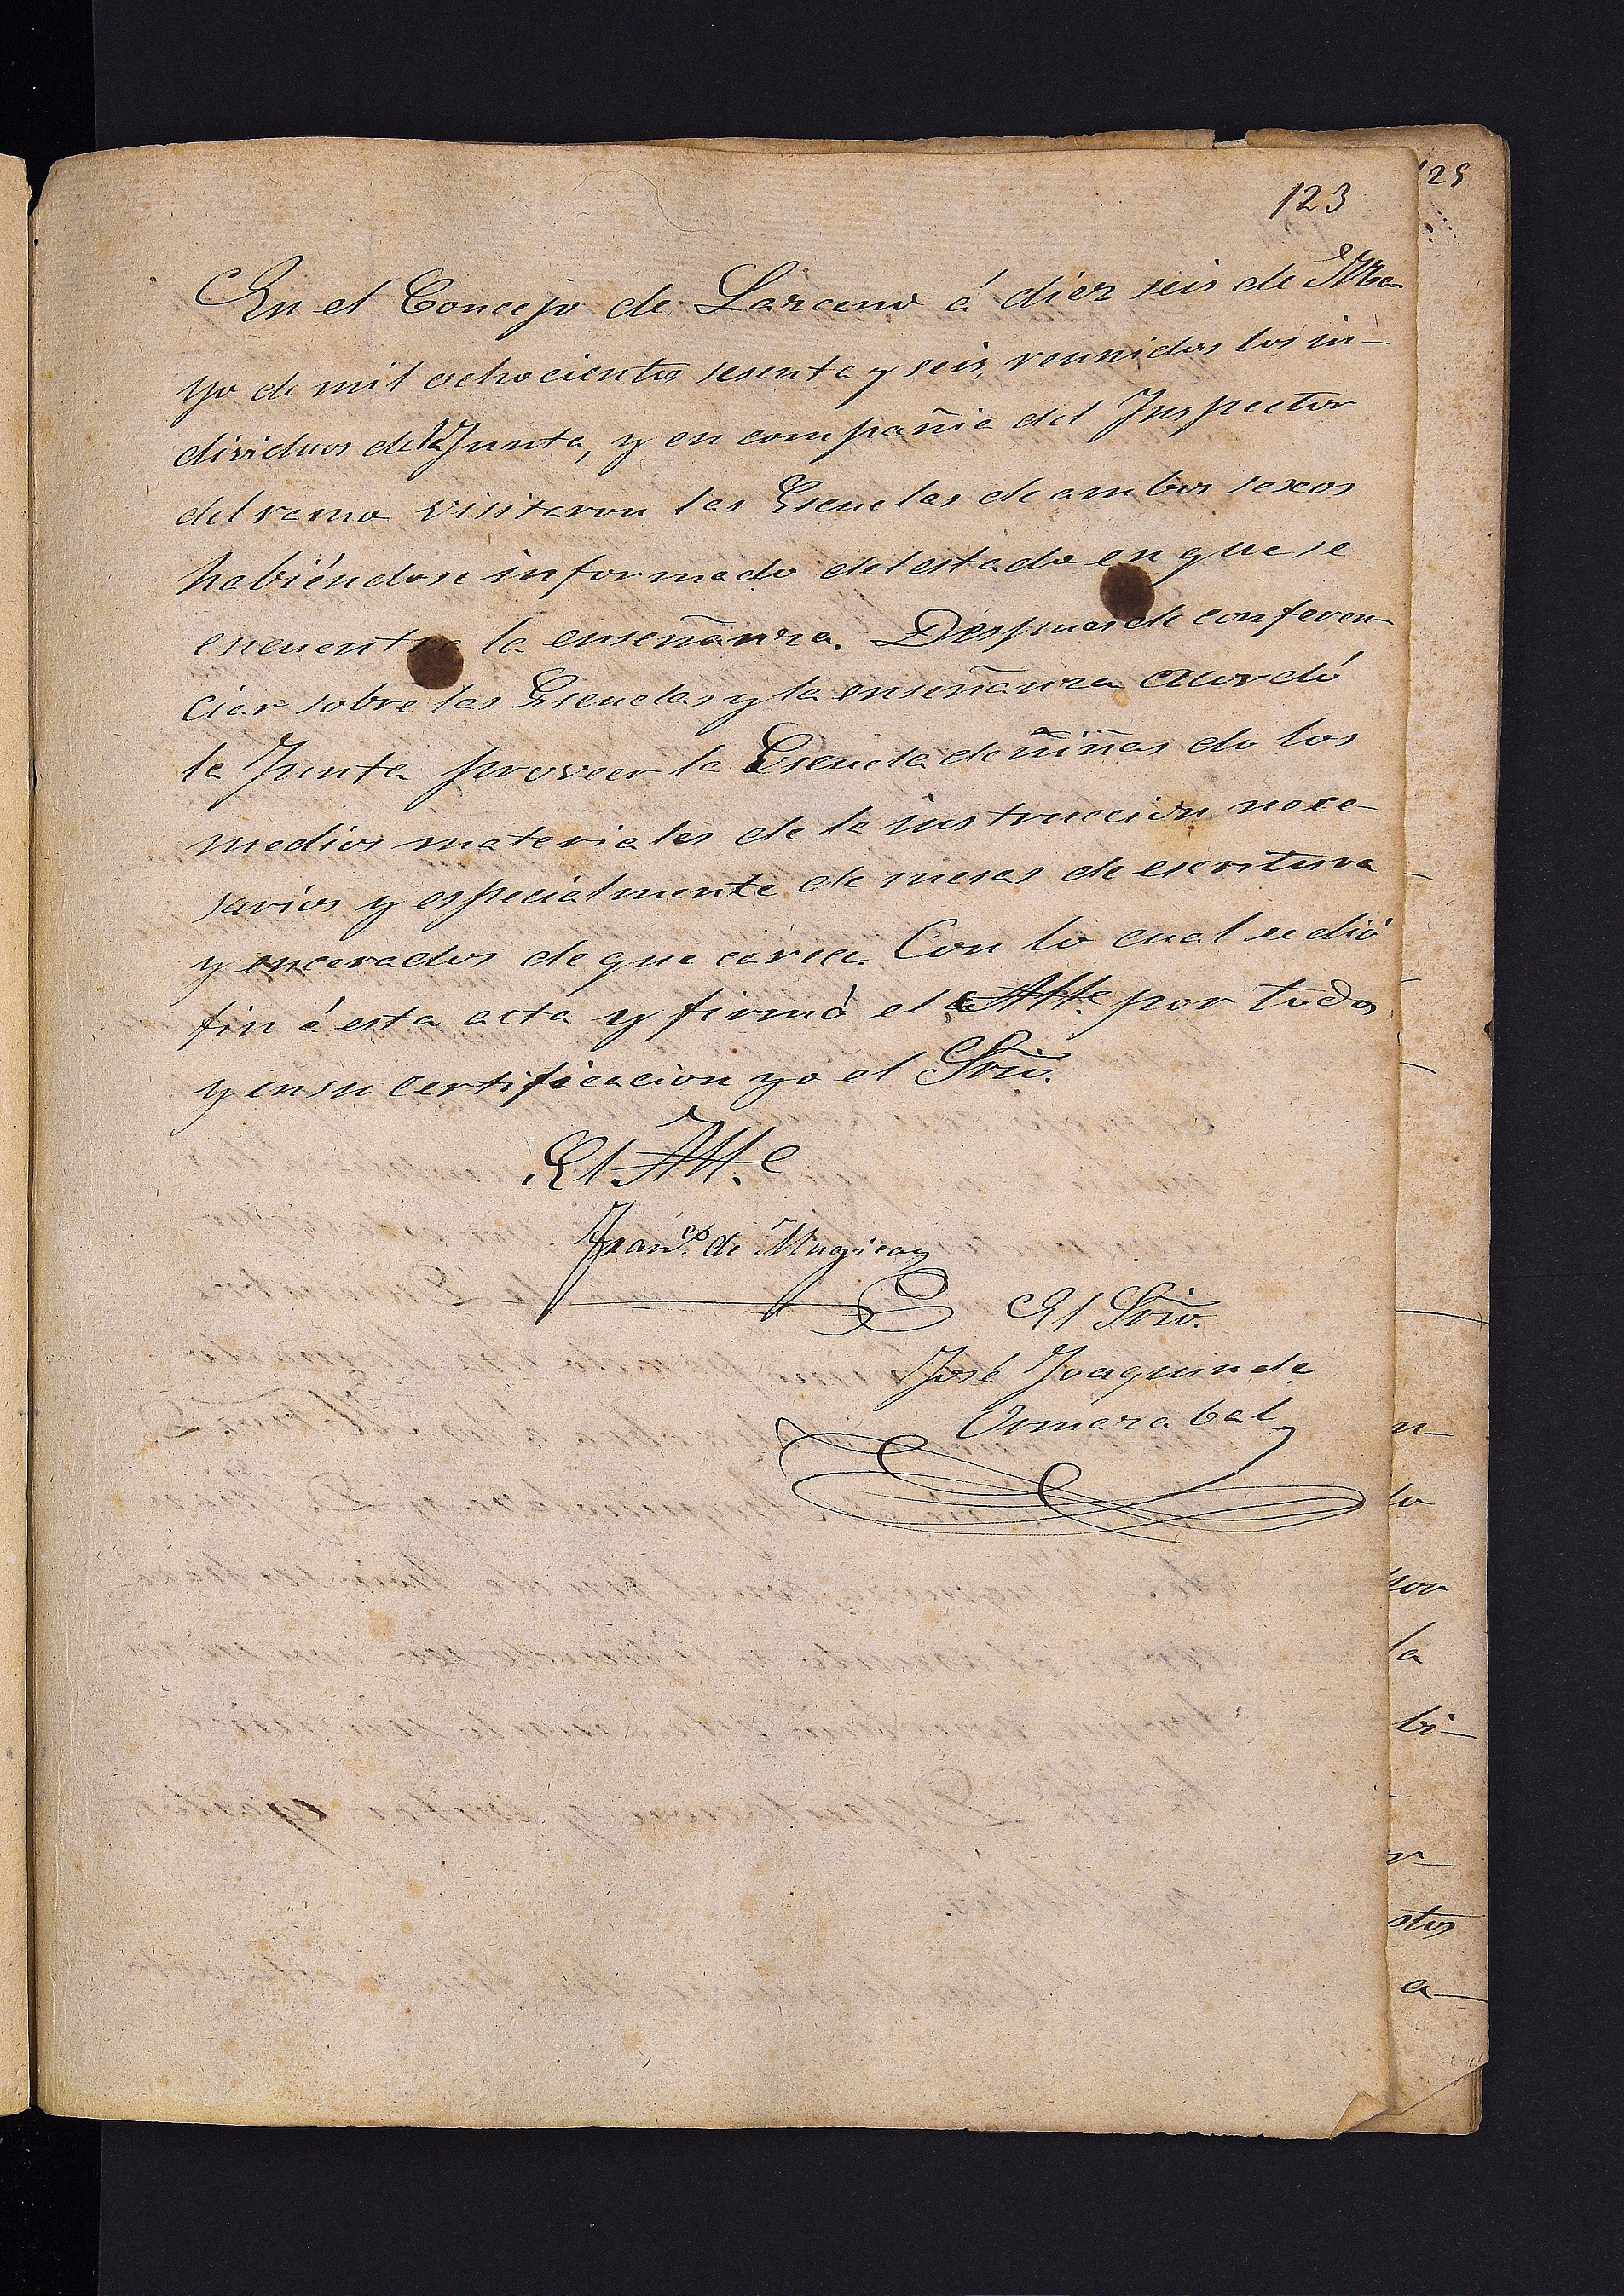 123
125
En el Concejo de Lazcano á diez seis de Ma-
yo de mil ochocientos sesenta y seis, reunidos los in-
dividuos de la Junta, y en compañia del Inspector
del ramo visitaron las Escuelas de ambos sexos
habiéndose informado del estado en que se
encuentra la enseñanza. Despues de conferen-
ciar sobre las Escuelas y la enseñanza acordó
la Junta proveer la Escuela de niñas de los
medios materiales de la instruccion nece-
sarios y especialmente de mesas de escritura
y encerados de que carece. Con lo cual se dió
fin á esta acta y firmó el Alte. por todos
y en su certificacion yo el Srio.
El Alte.
Franco. de Mugica
El Srio.
José Joaquin de
Ormazabal
n-
lo
por
la
bi-
r-
stos
a-